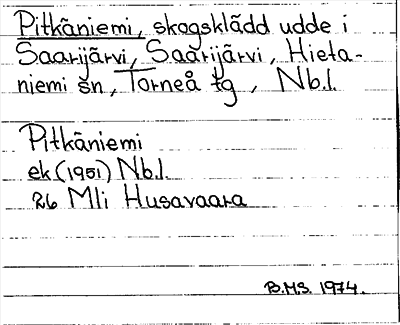 Pitkäniemi, skogsklädd udde i
Saarijärvi, Saarijärvi, Hieta-
niemi sn, Torneå tg, Nb.l.
Pitkäniemi
ek (1951) Nb.l.
26 Mli Husavaara
B.M.S. 1974.